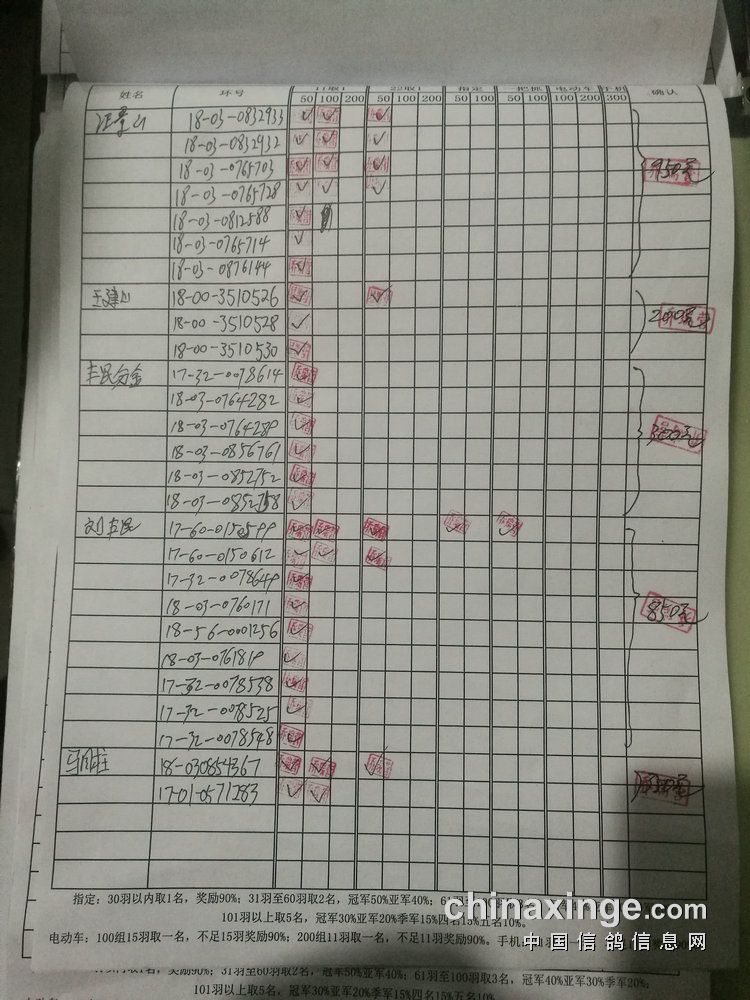 姓名 环号 11取1 22取1 指定 一把抓 电动车 手机 确认
50 100 200 50 100 200 50 100 50 100 100 200 300
18-03-0832933 ✓ ✓ ✓
18-03-0832932 ✓ ✓ ✓
18-03-0765703 ✓ ✓ ✓
18-03-0765728 ✓ ✓ ✓ 950元
18-03-0812588 ✓
18-03-0765714 ✓
18-03-0876144 ✓
王建山 18-00-3510526 ✓ ✓
18-00-3510528 ✓ 200元
18-00-3510530 ✓
丰民 17-32-0078614 ✓
18-03-0764282 ✓
18-03-0764289 ✓
18-03-0856761 ✓ 300元
18-03-0852752 ✓
18-03-0852758 ✓
刘丰民 17-60-0150599 ✓ ✓ ✓ ✓ ✓
17-60-0150612 ✓ ✓ ✓
17-32-0078649 ✓
18-03-0760171 ✓ 850元
18-56-0001256 ✓
18-03-0761819 ✓
17-32-0078538 ✓
17-32-0078525 ✓
17-32-0078548 ✓
18-030854367 ✓ ✓ ✓
17-01-0571283 ✓ ✓
指定：30羽以内取1名，奖励90%；31羽至60羽取2名，冠军50%亚军40%；6
101羽以上取5名，冠军30%亚军20%季军15%四名15%五名10%。
电动车：100组15羽取一名，不足15羽奖励90%；200组11羽取一名，不足11羽奖励90%。手机：
chinaxinge.com
中国信鸽信息网
取1名，奖励90%；31羽至60羽取2名，冠军50%亚军40%；61羽至100羽取3名，冠军40%亚军30%季军20%；
101羽以上取5名，冠军30%亚军20%季军15%四名15%五名10%。